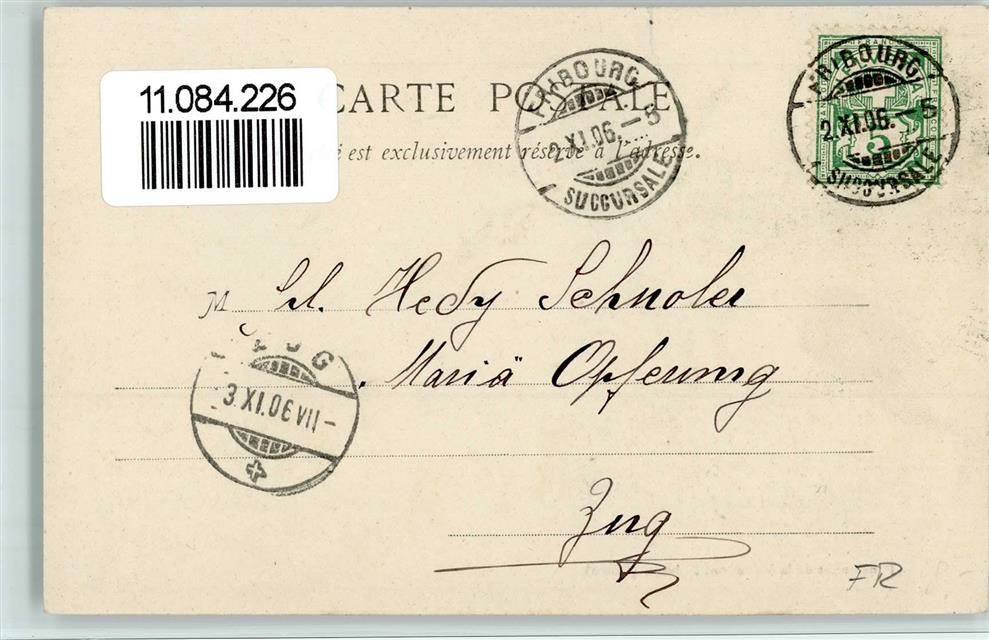 11.084.226
CARTE POSTALE
é est exclusivement réservé à l'adresse.
FRIBOURG
2.XI.06.-5
SUCCURSALE
FRANCO
FRIBOURG
2.XI.06.-5
SUCCURSALE
5
M Frl. Hedy Schnoler
Mariä Opferung
ZUG
3.XI.06 VII-
Zug
FR